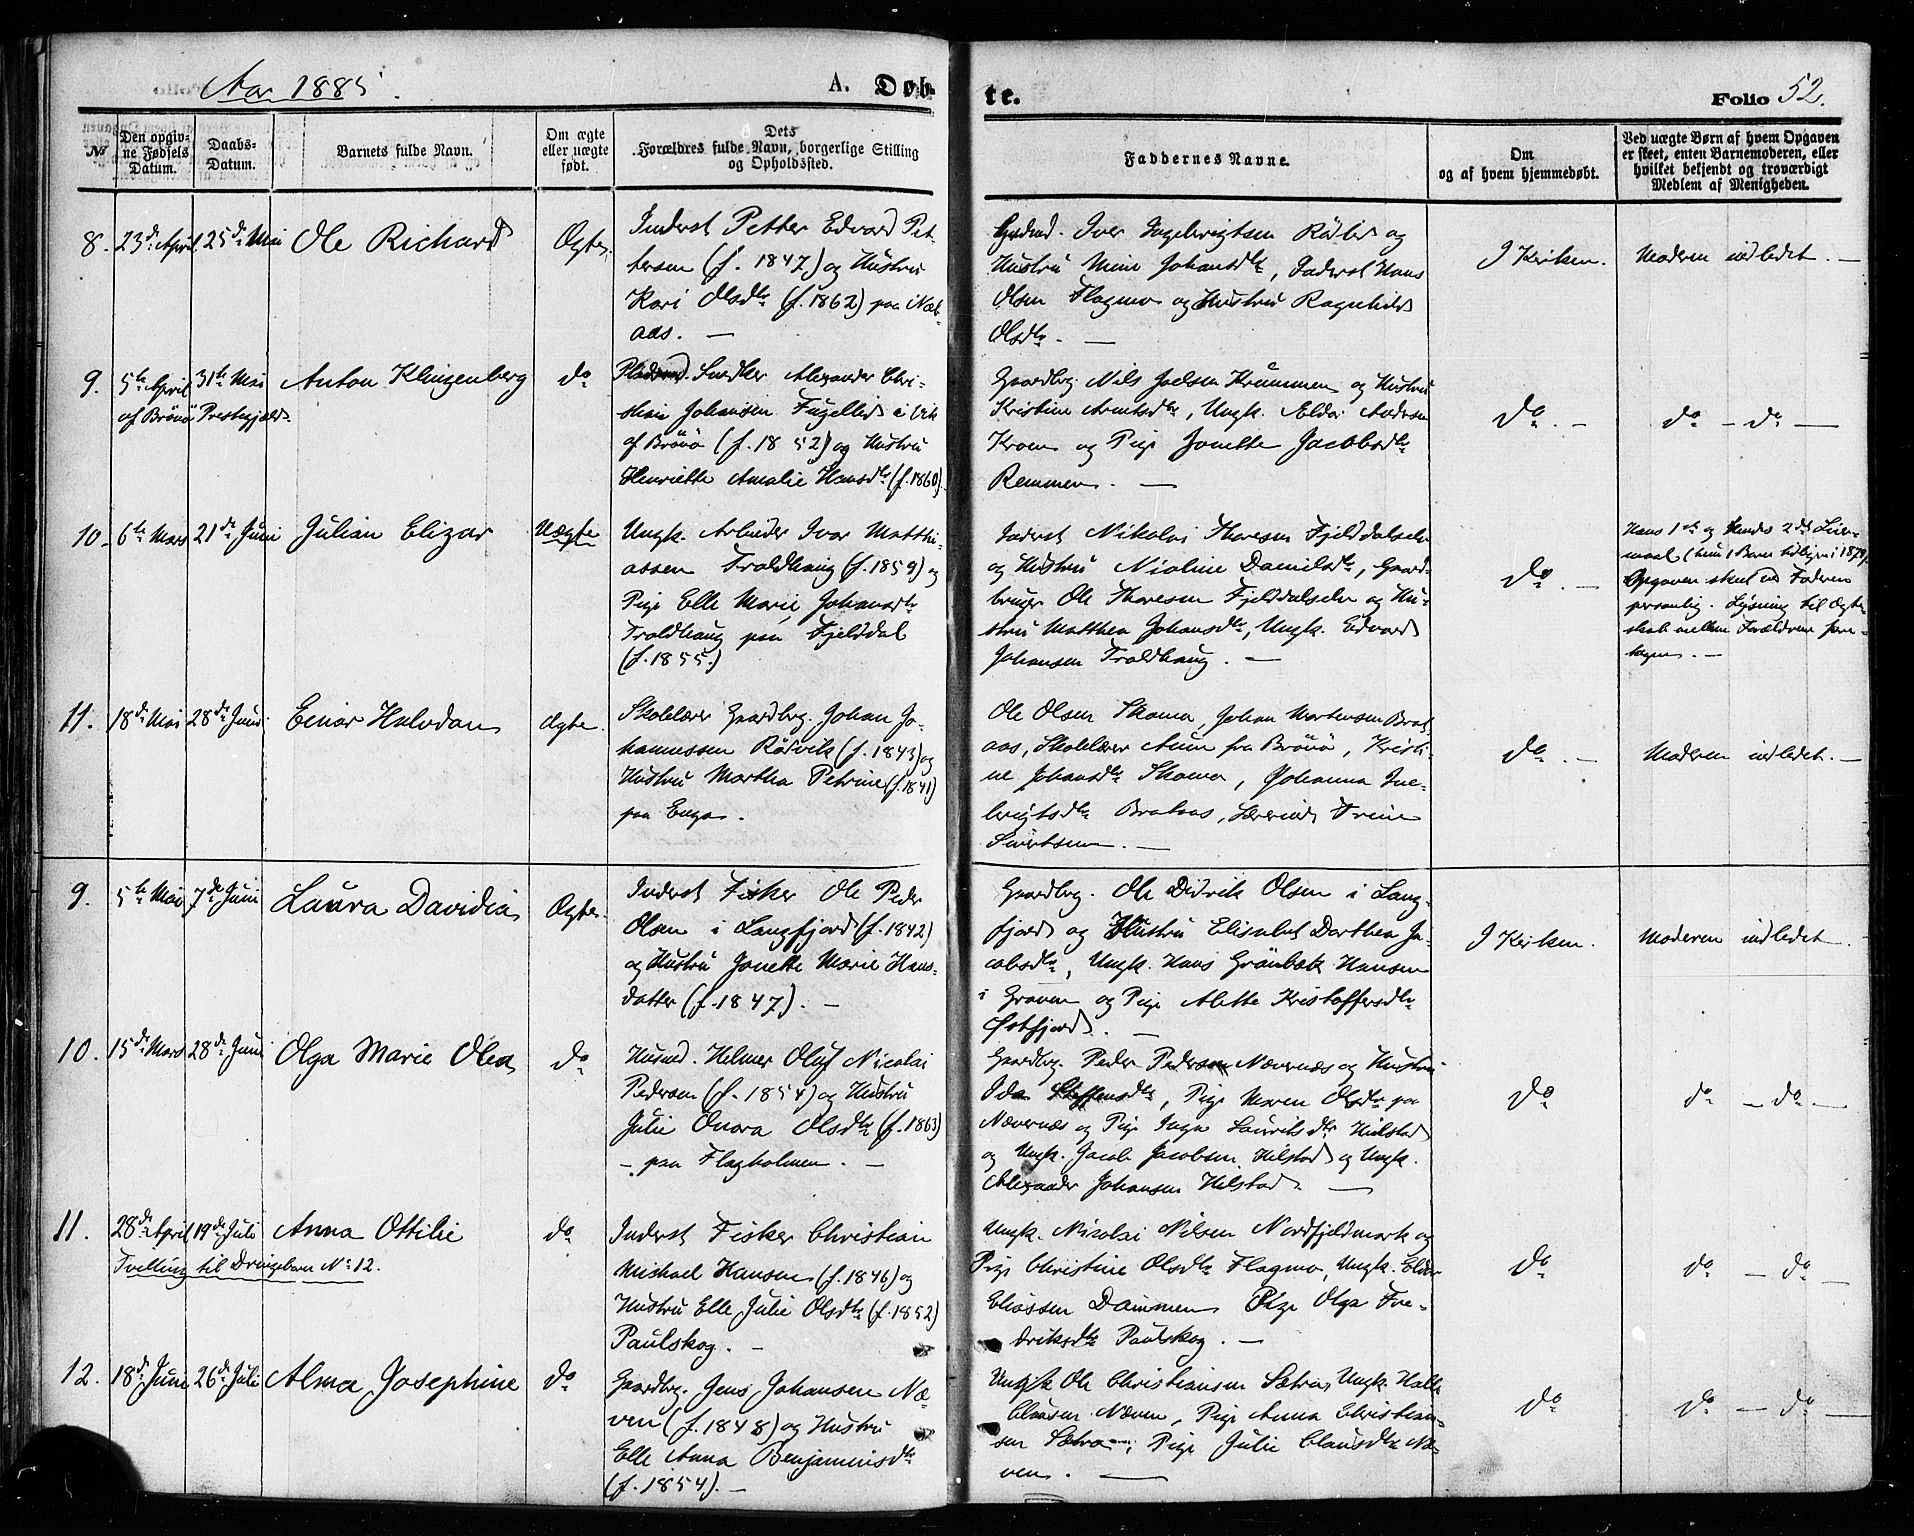 Aar 1885.
A. Døb-
te.
Folio 52.
No
Den opgiv-
ne Fødsels
Datum.
Daabs-
Datum.
Barnets fulde Navn.
Om ægte
eller uægte
født.
Dets
Forældres fulde Navn, borgerlige Stilling
og Opholdssted.
Faddernes Navne.
Om
og af hvem hjemmedøbt.
Ved uægte Børn af hvem Opgaven
er skeet, enten Barnemoderen, eller
hvilket bekjendt og troværdigt
Medlem af Menigheden.
8. 23de April 25de Mai Ole Richard Ægte.
Inderst Petter Edvard Pet-
tersen (f. 1847) og Hustru
Kari Olsdtr (f. 1862) paa
aas. —
Iver Ingebrigtsen og
Hustru Johansdtr, Inderst Hans
Olsen Flagmo og Hustru Ragnhild
Olsdtr. —
I Kirken. Moderen indledet. —
9. 5te April 31te Mai Anton Klingenberg do
af Brönö Prestegjæld.
Snedker Alexander Chri-
stian Johansen Fugellid i Vik
af Brönö (f. 1852) og Hustru
Henriette Amalie Hansdtr (f. 1860).
Gaardbrg. Nils Joelsen Krummen og Hustru
Kristine Arntsdtr, Ungk. Eldor Andersen
Kroen og Pige Jonette Jacobsdtr
Remmen. —
do. — do — do —
10. 6te Mars 21de Juni Julian Elizar Uægte
Ungk. Arbeider Ivar Matthi-
assen Troldhaug (f. 1859) og
Pige Elle Marie Johansdtr
Troldhaug paa Fjelddal
(f. 1855.)
Inderst Nikolai Thoresen Fjelddalselv
og Hustru Nioline Danielsdtr, Gaard-
bruger Ole Thoresen Fjelddalselv og Hu-
stru Matthea Johansdtr, Ungk. Edvard
Johansen Troldhaug. —
do —
Hans 1ste og Hendes 2det Leier-
maal (hun 1 Barn tidligere i 1879).
Opgaven skeet ved Faderen
personlig. Lysning til Ægte-
skab mellem Forældrene fore-
tagen. —
11. 18de Mai 28de Juni Einar Halvdan Ægte.
Skolelærer Gaardbrg. Johan Jo-
hannessen Rödvik (f. 1843) og
Hustru Martha Petrine (f. 1841)
paa Enga.
Ole Olsen Skomo, Johan Mortensen Brat
aas, Skolelærer Aune fra Brönö, Kristi-
ne Johansdtr Skomo, Johanna Ine-
brigtsdtr Brataas, Lærerinde Trine
Sivertsen. —
do. — Moderen indledet. —
9. 5te Mai 7de Juni Laura Davidia Ægte.
Inderst Fisker Ole Peder
Olsen i Langfjord (f. 1842)
og Hustru Jonette Marie Hans-
datter (f. 1847). —
Gaardbrg. Ole Didrik Olsen i Lang-
fjord og Hustru Elisabet Dorthea Ja-
cobsdtr, Ungk. Hans Grönbek Hansen
i Graven og Pige Alette Kristoffersdtr
Østfjord. —
I Kirken. Moderen indledet.
10. 15de Mars 28de Juni Olga Marie Olea do
Husmd. Helmer Oluf Nicolai
Pedersen (f. 1854) og Hustru
Julie Onora Olsdtr (f. 1863)
— paa Flagholmen. —
Gaardbrg. Peder Pedersen Nævernæs og Hustru
Ida Steffensdtr, Pige Maren Olsdtr paa
Nævernæs og Pige Inga Lauritsdtr Hilstad
og Ungk. Jacob Jacobsen Hilstad og Ungk.
Alexander Johansen Hilstad. —
do do — do —
11. 28de April 19de Juli Anna Ottilie do
Tvilling til Drengebarn No 12.
Inderst Fisker Christian
Michael Hansen (f. 1846) og
Hustru Elle Julie Olsdtr (f. 1852)
Paulskog. —
Ungk. Nicolai Nilsen Nordfjeldmark og
Pige Christine Olsdtr Flagmo, Ungk. Eldor
Eliassen Dammen Pige Olga Fre-
driksdtr Paulskog. —
do do — do —
12. 18de Juni 26de Juli Alma Josephine do
Gaardbrg. Jens Johansen Næ-
ven (f. 1848) og Hustru
Elle Anna Benjaminsdtr
(f. 1854). —
Ungk Ole Christiansen Sætra, Ungk. Halle
Clausen Næven, Pige Anna Christian-
sen Sætra, Pige Julie Clausdtr Næ-
ven. —
do do — do —